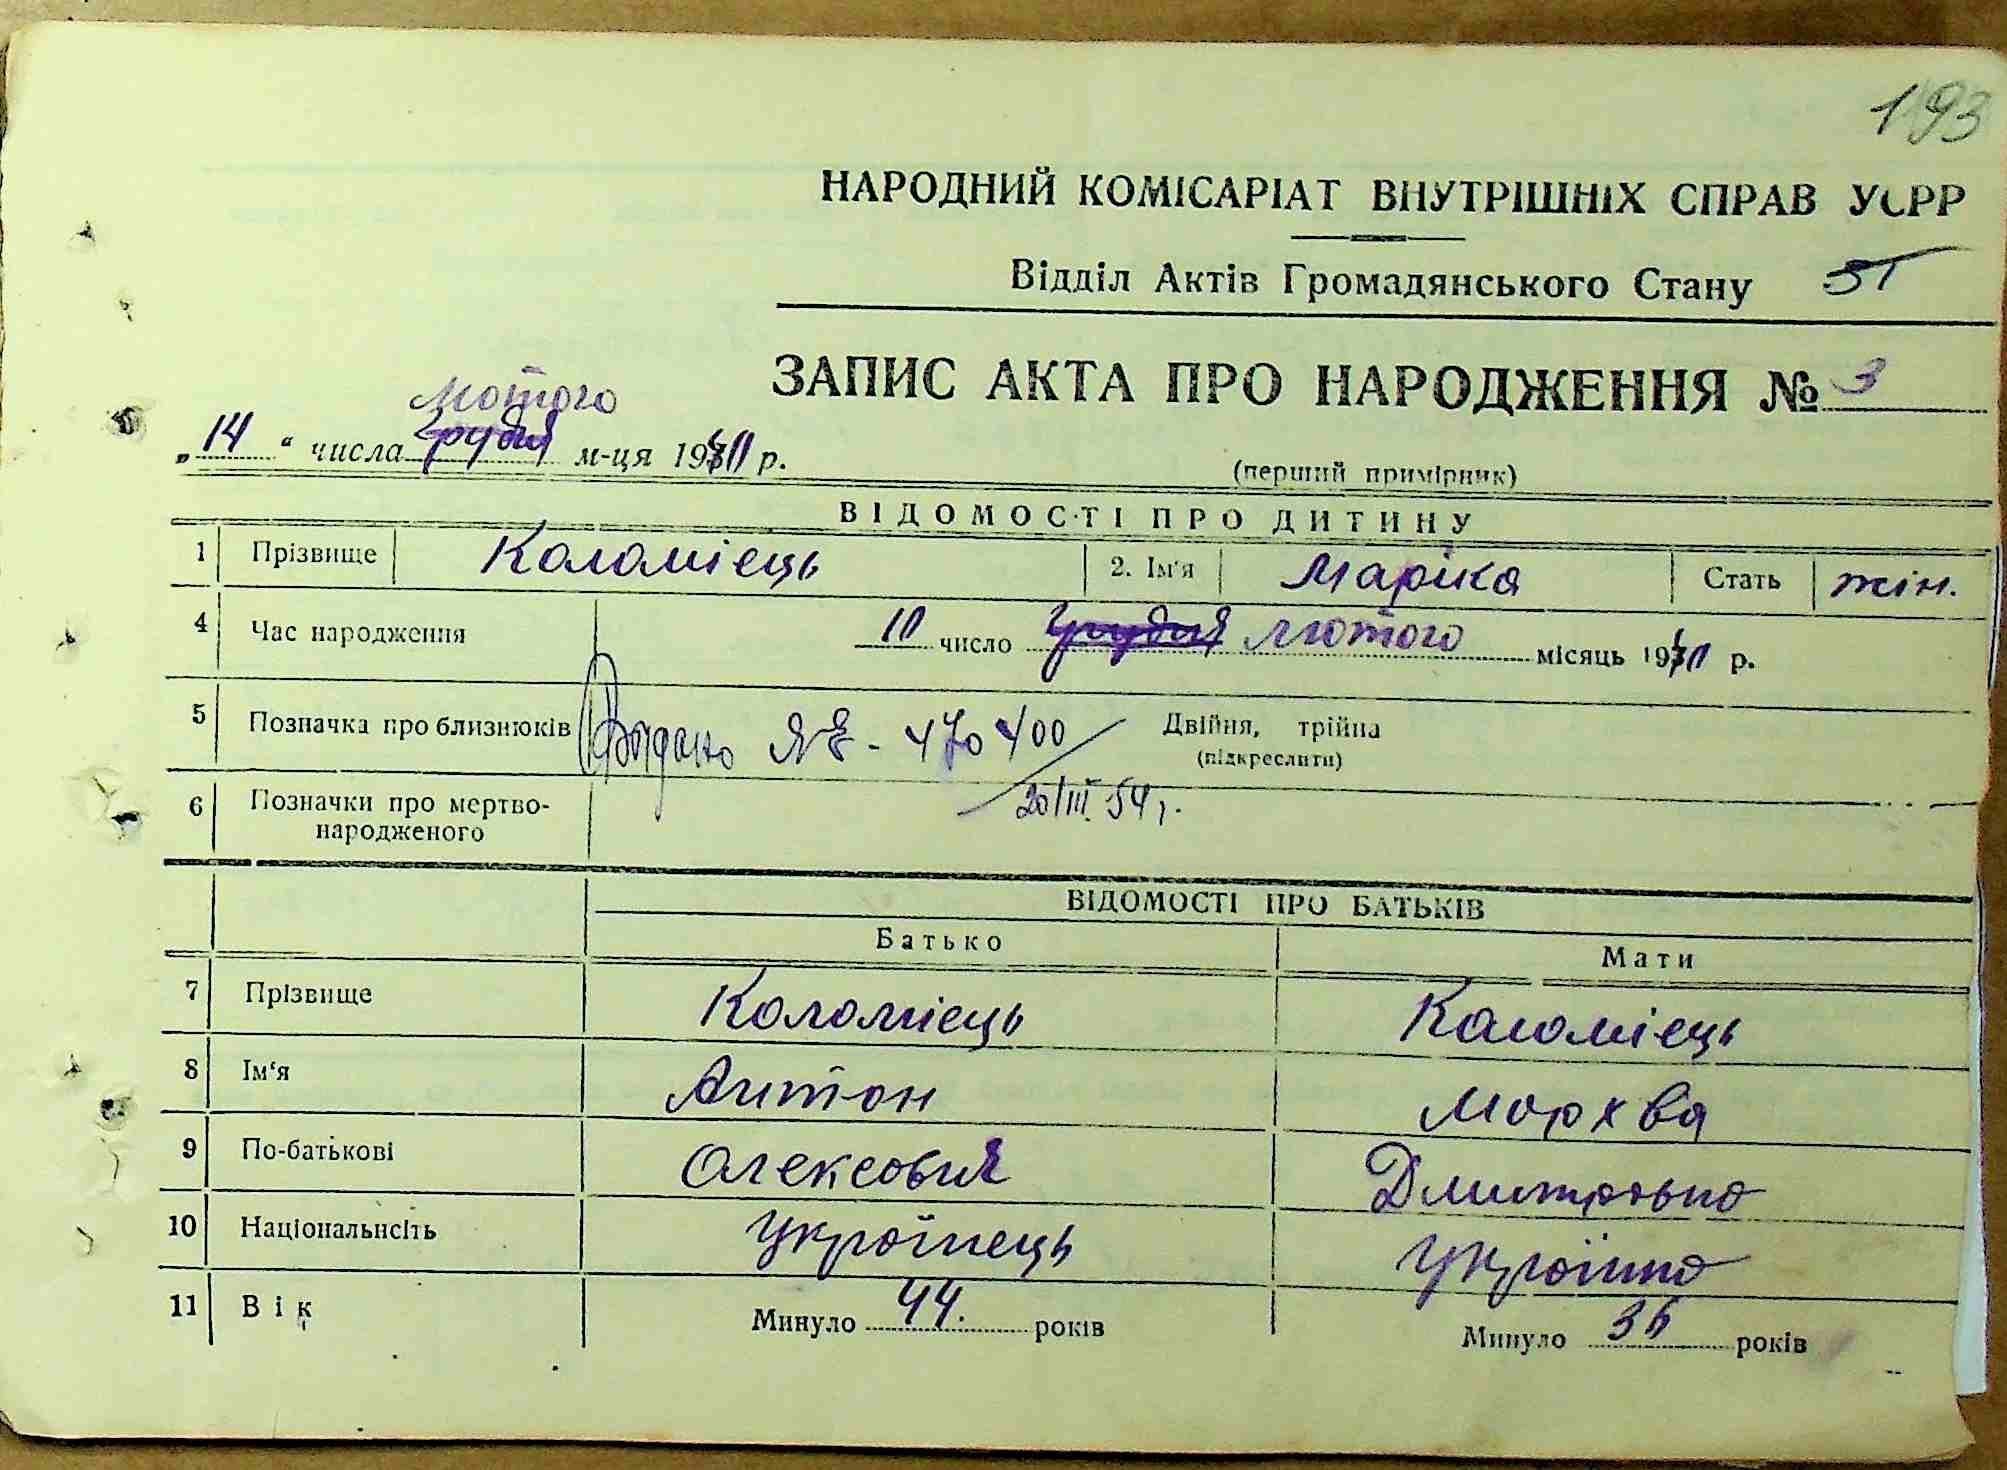 193
НАРОДНИЙ КОМІСАРІАТ ВНУТРІШНІХ СПРАВ УСРР
Відділ Актів Громадянського Стану
ЗАПИС АКТА ПРО НАРОДЖЕННЯ № 3
лютого
„14“ числа грудня м-ця 19 р.
(перший примірник)
ВІДОМОСТІ ПРО ДИТИНУ
1 Прізвище Коломієць 2. Ім'я Маріка Стать жін.
4 Час народження 10 число грудня лютого місяць 19 р.
5 Позначка про близнюків Выдано ЯЕ - 470400 Двійня, трійна
(підкреслити)
6 Позначки про мертво- 20/III 54 г.
народженого
ВІДОМОСТІ ПРО БАТЬКІВ
Батько Мати
7 Прізвище Коломієць Коломієць
8 Ім'я Антон Морхва
9 По-батькові Олексович Дмитровна
10 Національнсіть Українець Українка
11 Вік Минуло 44. років Минуло 36 років